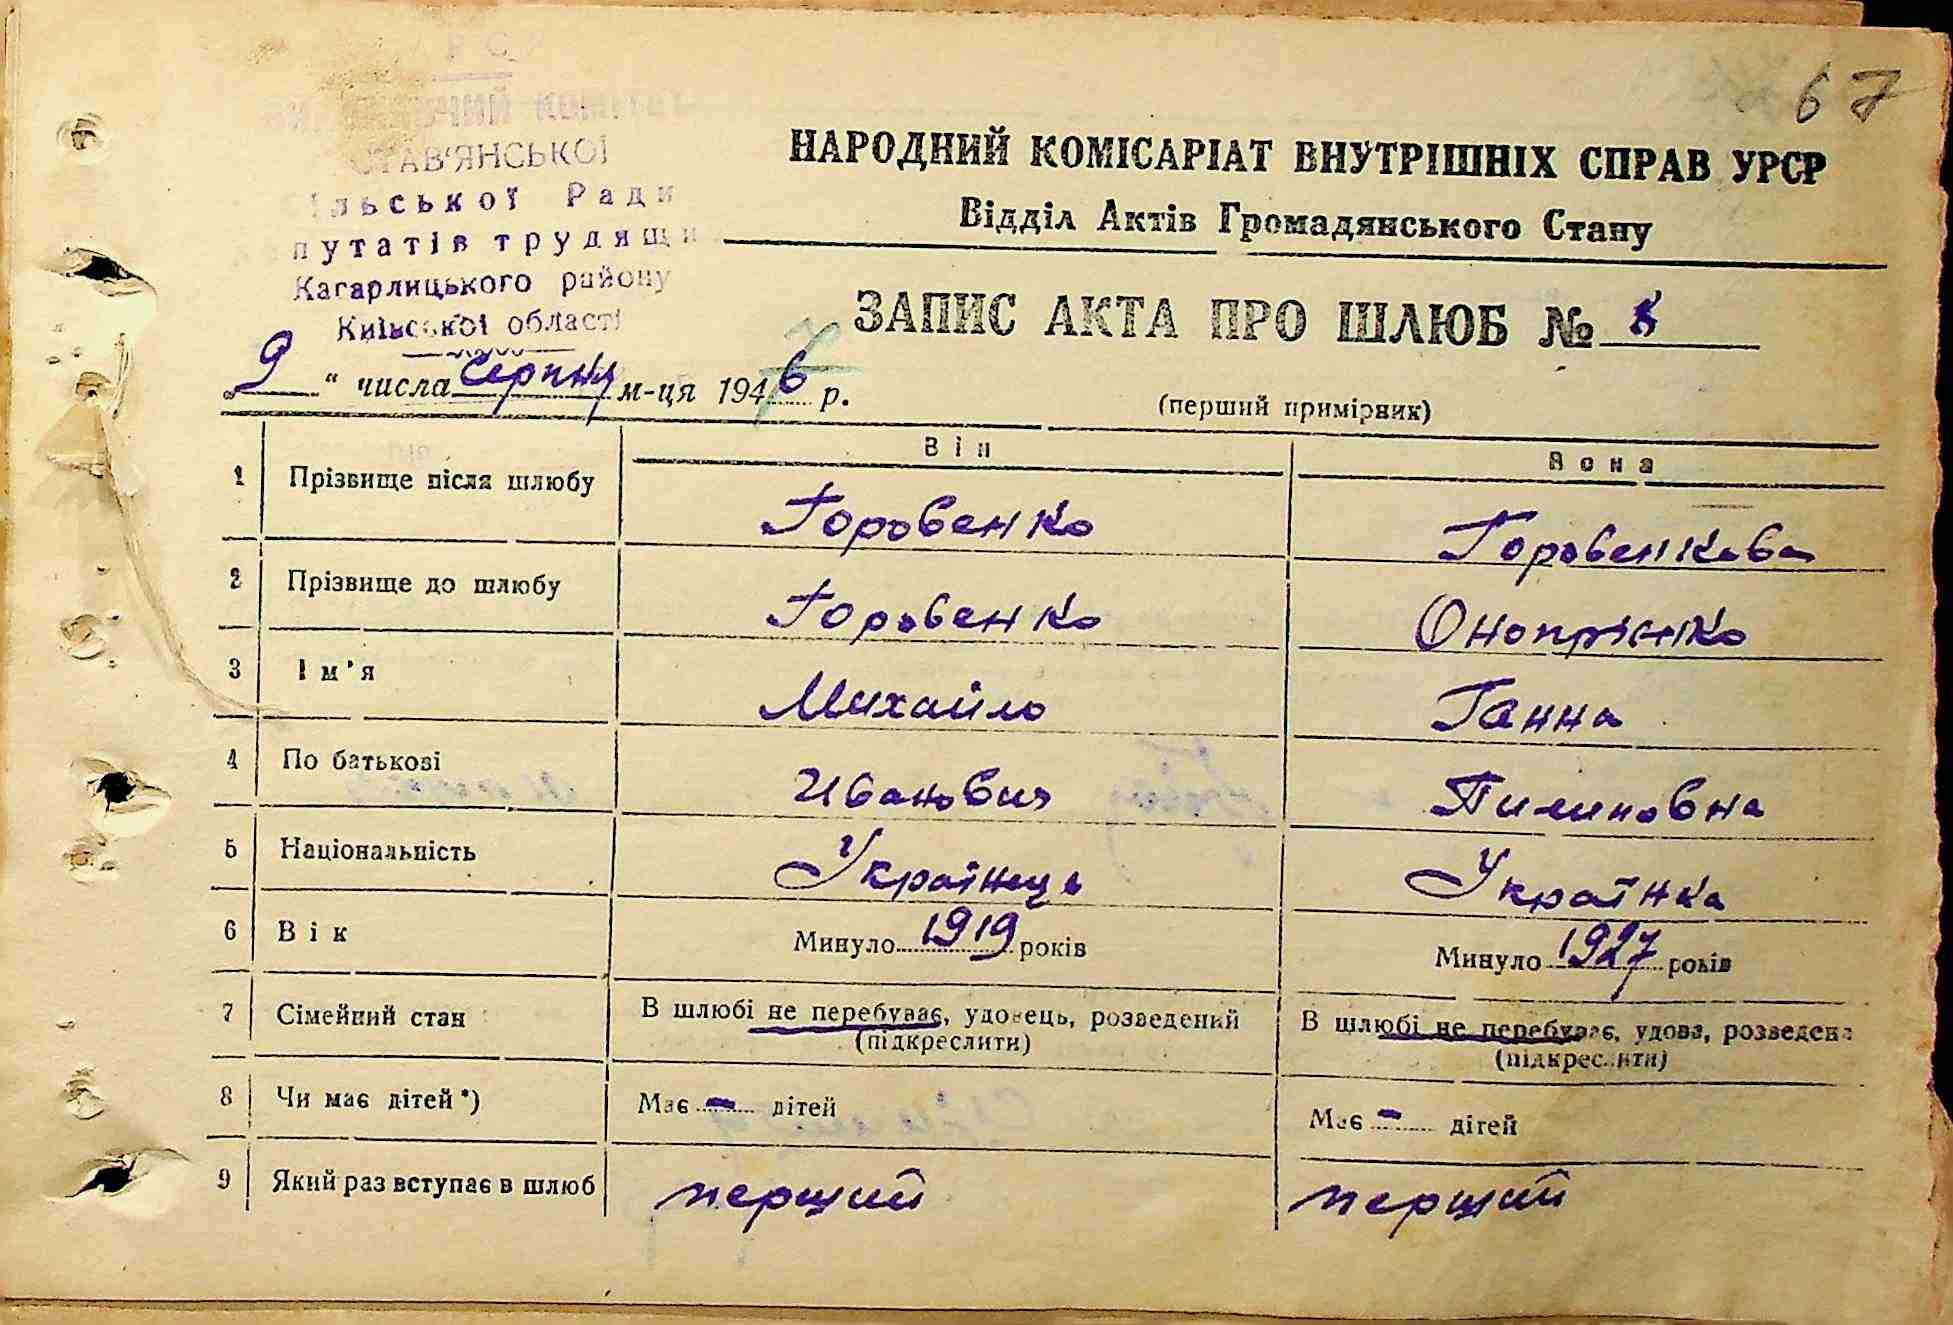 67
СТАВ'ЯНСЬКОЇ
ільської Ради
путатів трудящи
Кагарлицького району
Київської області
НАРОДНИЙ КОМІСАРІАТ ВНУТРІШНІХ СПРАВ УРСР
Відділ Актів Громадянського Стану
ЗАПИС АКТА ПРО ШЛЮБ №
„9" числа серпня м-ця 1946 р.
(перший примірник)
Він Вона
1 Прізвище після шлюбу Горовенко Горовенкова
2 Прізвище до шлюбу Горовенко Онопрієнко
3 Ім'я Михайло Ганна
4 По батькові Иванович Пилиповна
5 Національність Українець Українка
6 Вік Минуло 1919 років Минуло 1927 років
7 Сімейний стан В шлюбі не перебуває, удовець, розведений В шлюбі не перебуває, удова, розведена
(підкреслити) (підкреслити)
8 Чи має дітей*) Має - дітей Має - дітей
9 Який раз вступає в шлюб перший перший